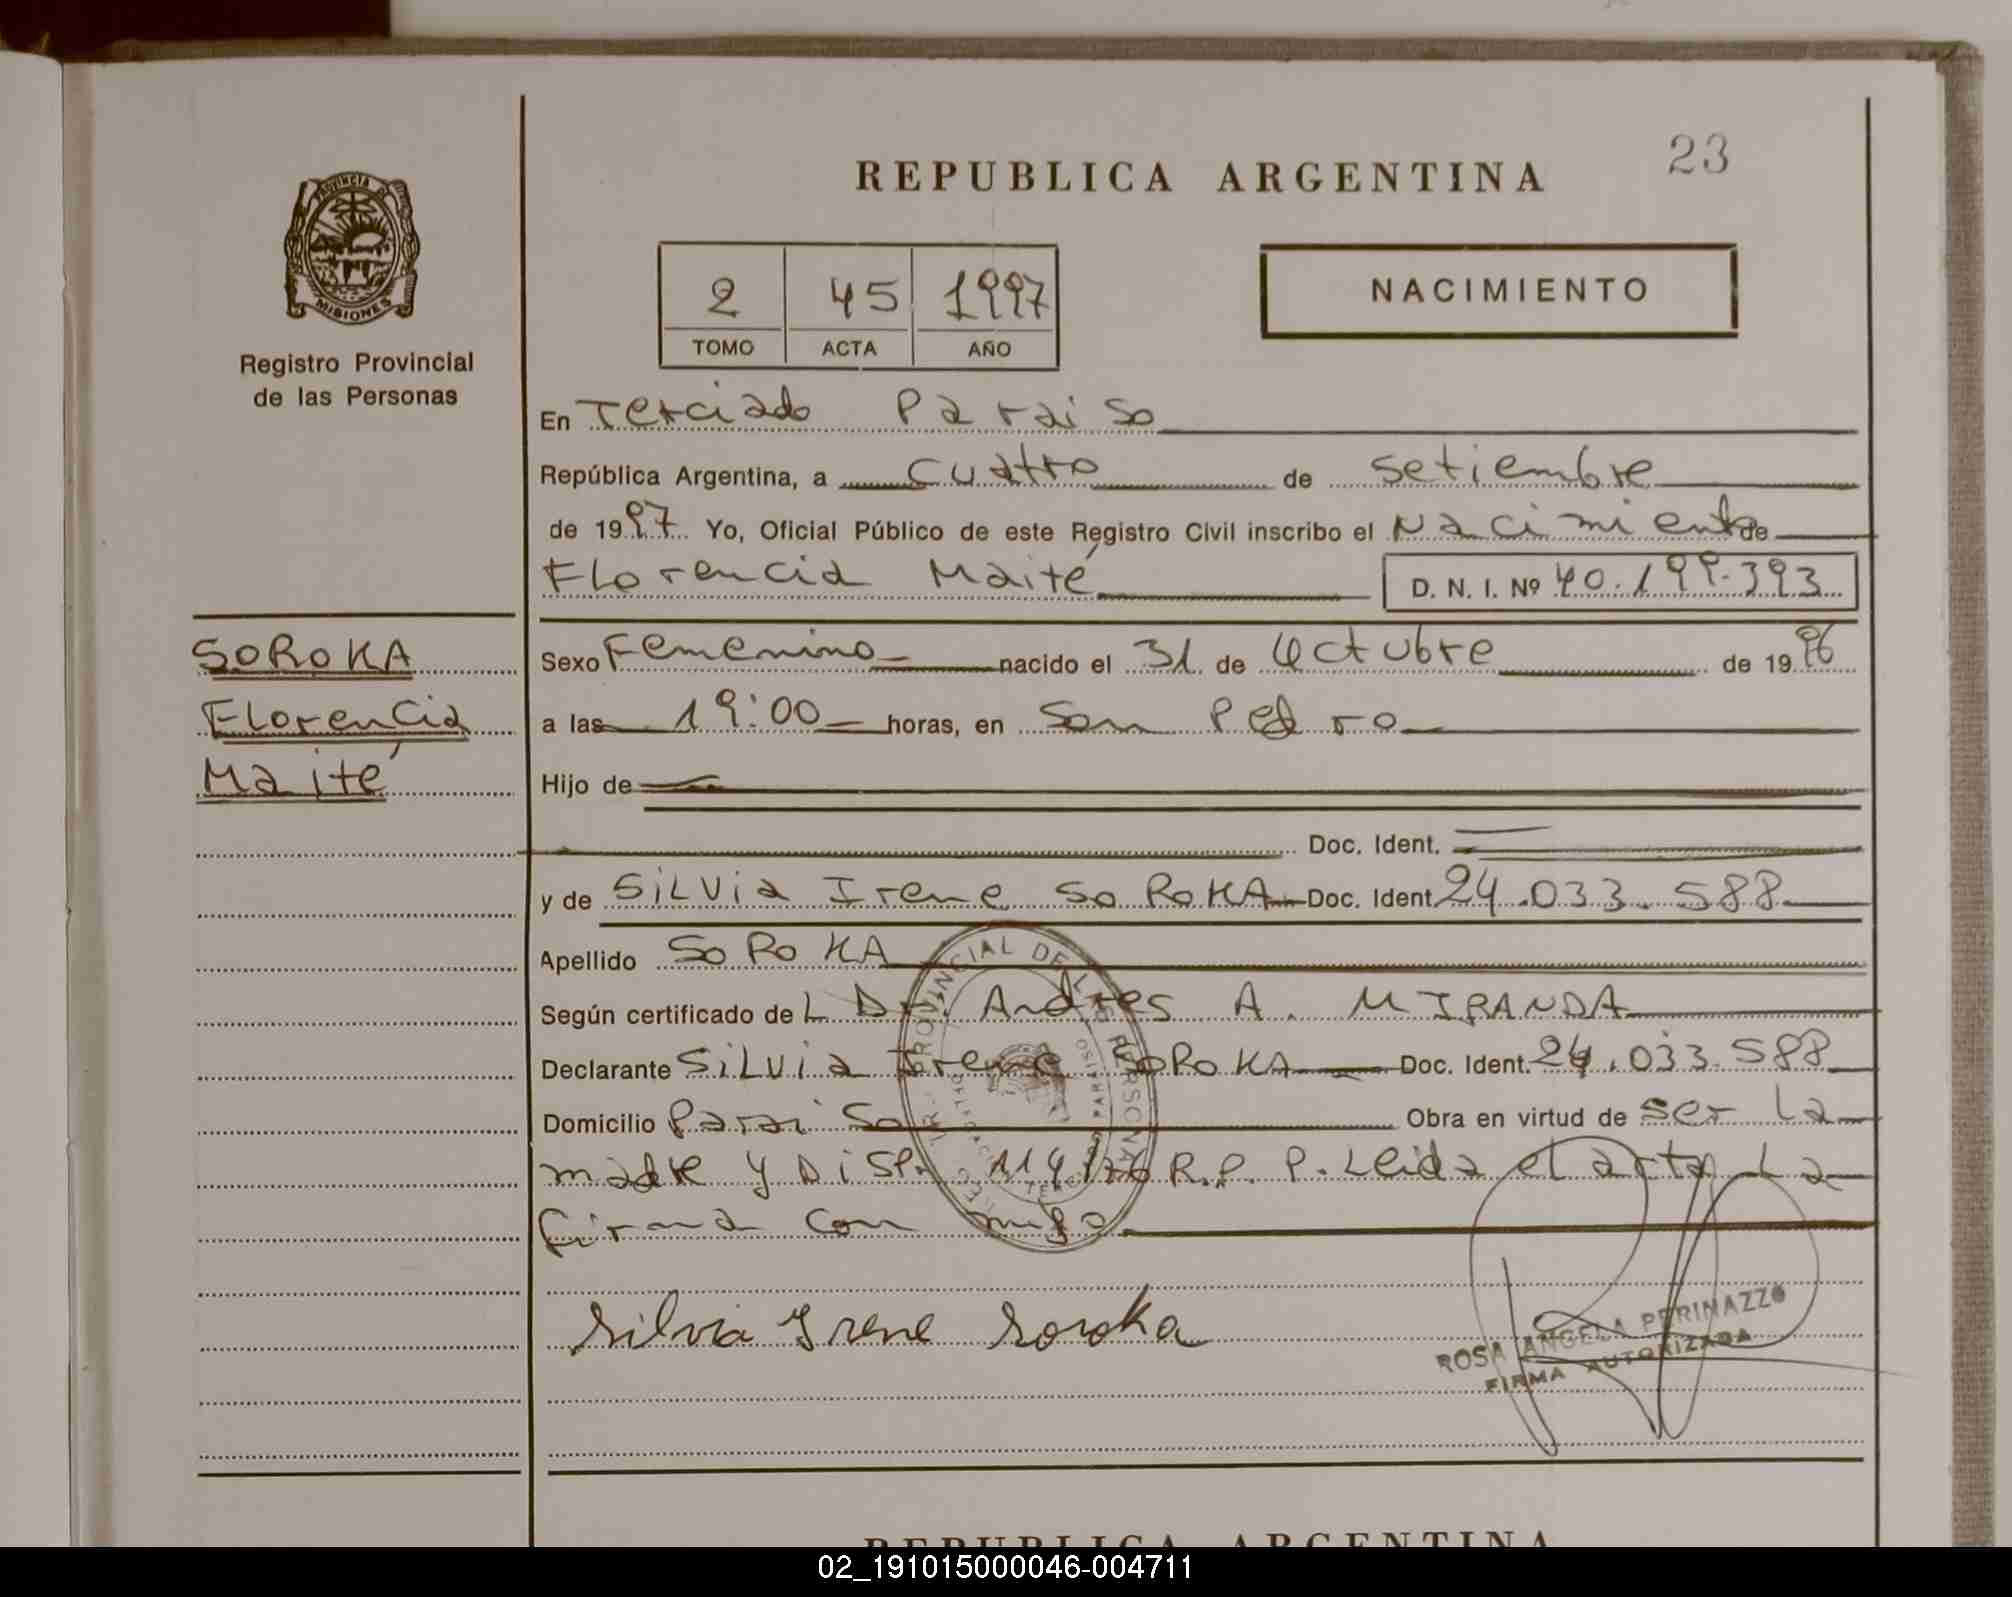 23
REPUBLICA ARGENTINA
PROVINCIA DE
MISIONES
Registro Provincial
de las Personas
2 45 1997
TOMO ACTA AÑO
NACIMIENTO
En Terciado Paraiso
República Argentina, a cuatro de setiembre
de 1997 Yo, Oficial Público de este Registro Civil inscribo el Nacimiento de
Florencia Maité D. N. I. Nº 40.199.393
SOROKA
Florencia
Maité
Sexo Femenino nacido el 31 de Octubre de 1996
a las 19:00 horas, en San Pedro
Hijo de
Doc. Ident.
y de Silvia Irene SOROKA Doc. Ident. 24.033.588
Apellido SOROKA
Según certificado del Dr. Andres A. MIRANDA
Declarante Silvia Irene SOROKA Doc. Ident. 24.033.588
Domicilio Paraiso Obra en virtud de ser la
madre y Disp. 114/76 R.P.P. Leida el acta La
firma conmigo
Silvia Irene Soroka
ROSA ANGELA PERINAZZO
FIRMA AUTORIZADA
REPUBLICA ARGENTINA
02_191015000046-004711